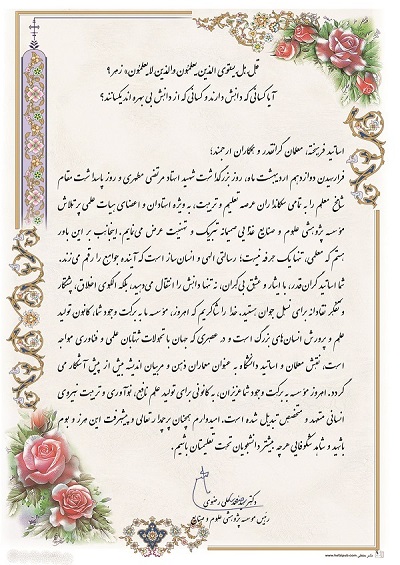 قل هل یستوی الذین یعلمون والذین لا یعلمون» زمر ۹
آیا کسانی که دانش دارند و کسانی که از دانش بی بهره اند یکسانند؟
اساتید فرهیخته، معلمان گرانقدر و همکاران ارجمند؛
فرارسیدن دوازدهم اردیبهشت ماه، روز بزرگداشت شهید استاد مرتضی مطهری و روز پاسداشت مقام
شامخ معلم را به تمامی سکانداران عرصه تعلیم و تربیت، به ویژه استادان و اعضای هیات علمی پرتلاش
مؤسسه پژوهشی علوم و صنایع غذایی صمیمانه تبریک و تهنیت عرض می‌نمایم. اینجانب بر این باور
هستم که معلمی، تنها یک حرفه نیست؛ رسالتی الهی و انسان‌ساز است که آینده جوامع را رقم می‌زند.
شما اساتید گران‌قدر، با ایثار و عشق بی‌کران، نه تنها دانش را انتقال می‌دهید، بلکه الگوی اخلاق، پشتکار
و تفکر نقادانه برای نسل جوان هستید. خدا را شاکریم که امروز، مؤسسه ما به برکت وجود شما، کانون تولید
علم و پرورش انسان‌های بزرگ است و در عصری که جهان با تحولات شتابان علمی و فناوری مواجه
است، نقش معلمان و اساتید دانشگاه به عنوان معماران ذهن و مربیان اندیشه بیش از پیش آشکار می
گردد. امروز مؤسسه به برکت وجود شما عزیزان، به کانونی برای تولید علم نافع، نوآوری و تربیت نیروی
انسانی متعهد و متخصص تبدیل شده است. امیدوارم همچنان پرچمدار تعالی و پیشرفت این مرز و بوم
باشید و شاهد شکوفایی هرچه بیشتر دانشجویان تحت تعلیمتان باشیم.
رضوی
رئیس مؤسسه پژوهشی علوم و صنایع